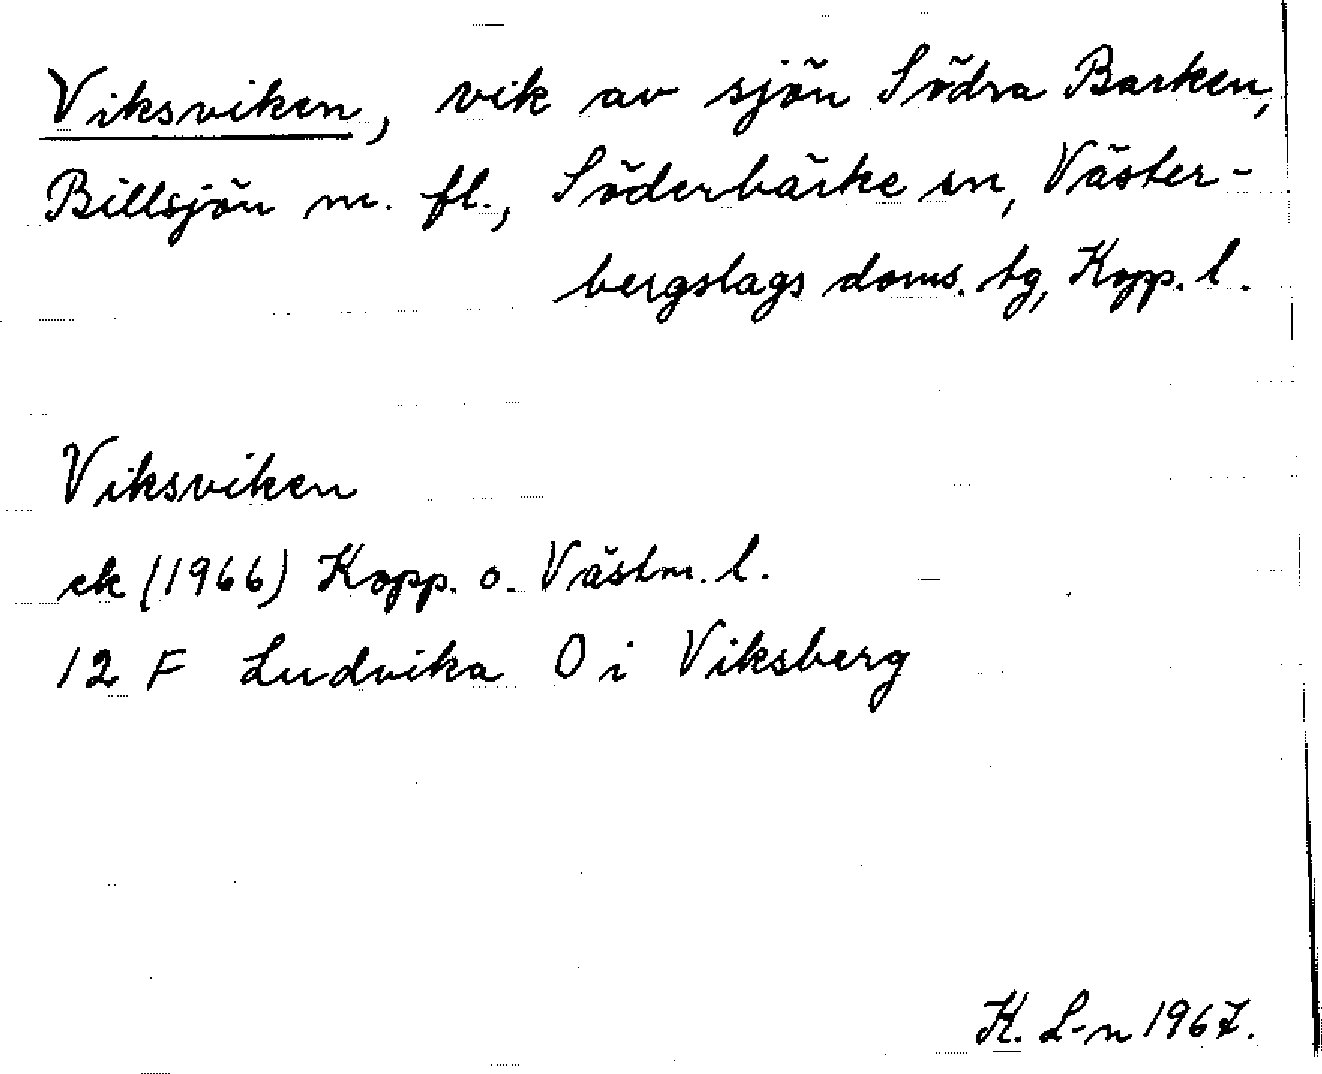 Viksviken, vik av sjön Södra Barken,
Billsjön m. fl., Söderbärke sn, Väster-
bergslags doms. tg, Kopp. l.
Viksviken
ek (1966) Kopp. o. Västm. l.
12 F Ludvika O i Viksberg
K. L-n 1967.